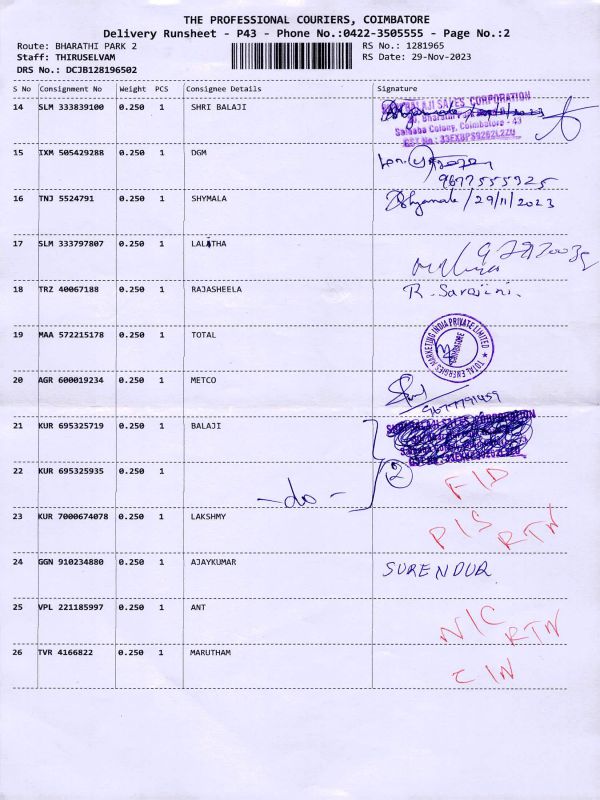 THE PROFESSIONAL COURIERS, COIMBATORE
Delivery Runsheet - P43 - Phone No.:0422-3505555 - Page No.:2
Route: BHARATHI PARK 2 RS No.: 1281965
Staff: THIRUSELVAM RS Date: 29-Nov-2023
DRS No.: DCJB128196502
S No Consignment No Weight PCS Consignee Details Signature
14 SLM 333839100 0.250 1 SHRI BALAJI
BALAJI SALES CORPORATION
Saibaba Colony, Coimbatore - 43
15 IXM 505429288 0.250 1 DGM
9677555325
16 TNJ 5524791 0.250 1 SHYMALA Shyamala / 29/11/2023
17 SLM 333797807 0.250 1 LALATHA
18 TRZ 40067188 0.250 1 RAJASHEELA R. Sarojini.
19 MAA 572215178 0.250 1 TOTAL
TOTAL ENERGIES MARKETING INDIA PRIVATE LIMITED ★
COIMBATORE
20 AGR 600019234 0.250 1 METCO
21 KUR 695325719 0.250 1 BALAJI
22 KUR 695325935 0.250 1 - do - 2 FID
23 KUR 7000674078 0.250 1 LAKSHMY P/S RTN
24 GGN 910234880 0.250 1 AJAYKUMAR SURENDUR
25 VPL 221185997 0.250 1 ANT N/C RTN
26 TVR 4166822 0.250 1 MARUTHAM CIN